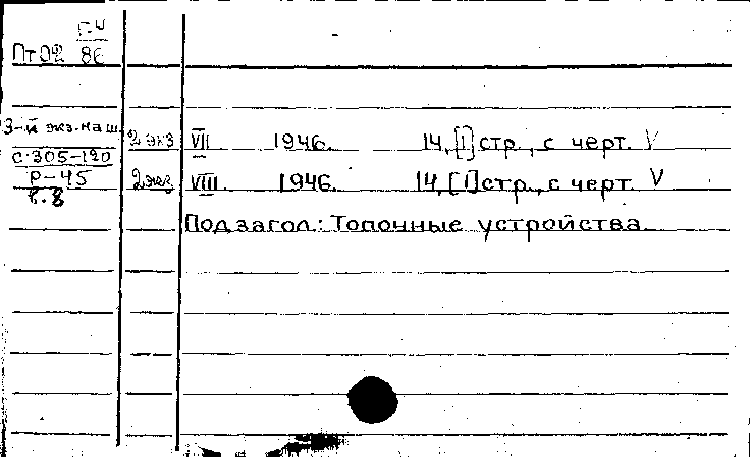 Г-4
ПтО2 86
3-й экз. наш
2 экз VII 1946. 14, [1] стр., с черт. V
С-305-120
Р-45
2 экз VIII. 1946. 14, [1] стр., с черт. V
в. 8
Подзагол: Топочные устройства